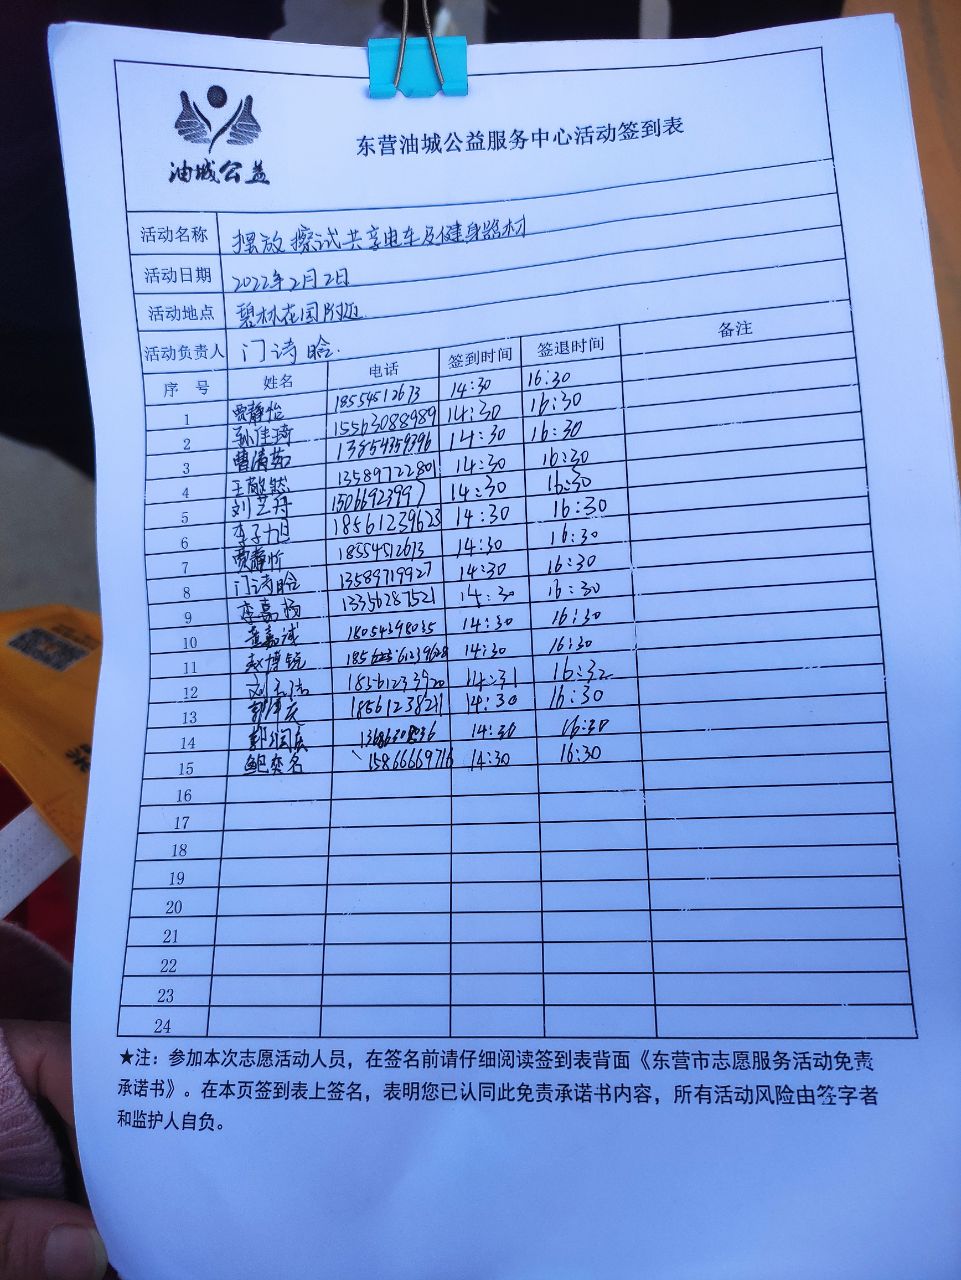 油城公益
东营油城公益服务中心活动签到表
活动名称 摆放擦试共享电车及健身器材
活动日期 2022年2月2日
活动地点 碧林花园附近
活动负责人 门诗晗.
序 号 姓名 电话 签到时间 签退时间 备注
1 贾静怡 18554512673 14:30 16:30
2 孙佳琦 15563088989 14:30 16:30
3 曹清茹 13854359396 14:30 16:30
4 王敬然 13589722801 14:30 16:30
5 刘艺丹 1506692399 14:30 16:30
6 李子旭 18561239623 14:30 16:30
7 贾静忻 18554512673 14:30 16:30
8 门诗晗 13589719927 14:30 16:30
9 李嘉杨 13356287521 14:30 16:30
10 董嘉诚 18054398035 14:30 16:30
11 赵博锐 14:30 16:30
12 18561233920 14:31 16:32
13 18561238211 14:30 16:30
14 14:30 16:30
15 鲍奕名 15866669716 14:30 16:30
16
17
18
19
20
21
22
23
24
★注：参加本次志愿活动人员，在签名前请仔细阅读签到表背面《东营市志愿服务活动免责
承诺书》。在本页签到表上签名，表明您已认同此免责承诺书内容，所有活动风险由签字者
和监护人自负。